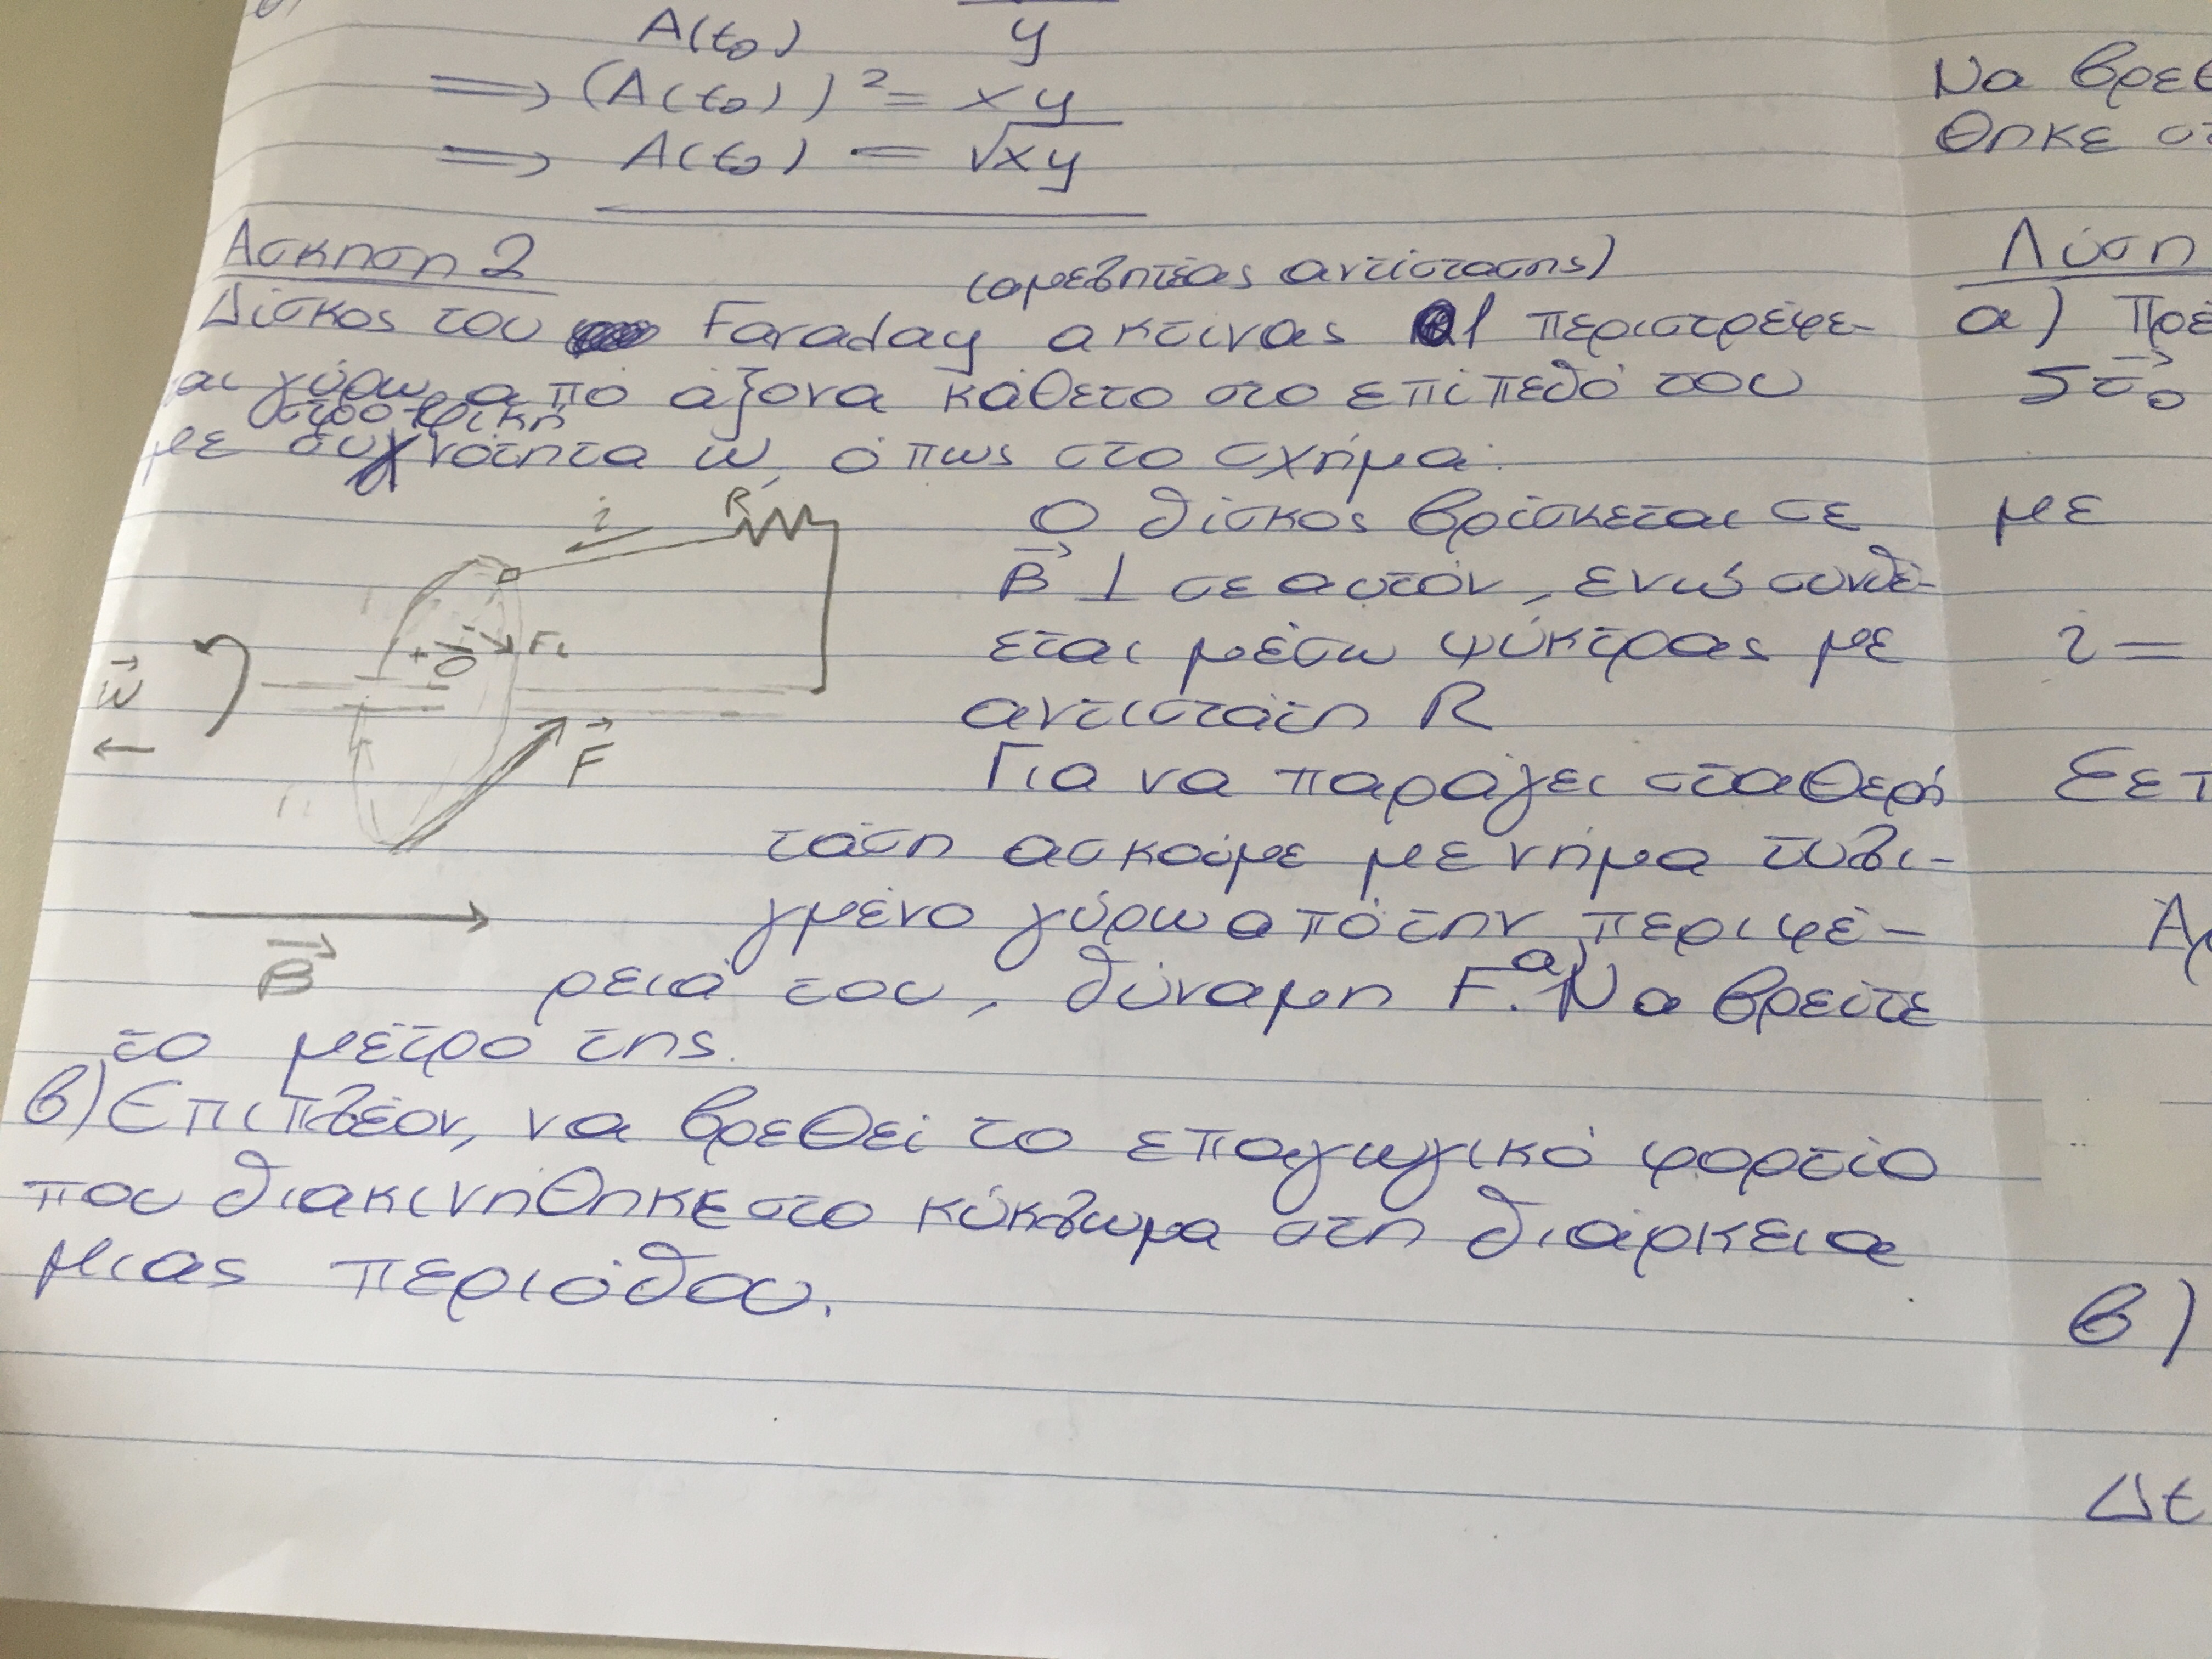 A(t₀) y
⟹ (A(t₀))² = xy
⟹ A(t₀) = √xy
Άσκηση 2
(αμελητέας αντίστασης)
Δίσκος του Faraday ακτίνας l περιστρέφε-
αι γύρω από άξονα κάθετο στο επίπεδό του
στροφική
με συχνότητα ω, όπως στο σχήμα:
Ο δίσκος βρίσκεται σε
B ⊥ σε αυτόν, ενώ συνδέ-
εται μέσω ψύκτρας με
αντίσταση R
Για να παράγει σταθερή
τάση ασκούμε με νήμα τυλι-
γμένο γύρω από την περιφέ-
ρειά του, δύναμη F. α) Να βρείτε
το μέτρο της.
β) Επιπλέον, να βρεθεί το επαγωγικό φορτίο
που διακινήθηκε στο κύκλωμα στη διάρκεια
μιας περιόδου.
R
i
+ - FL
ω
F
B
Να βρε
θηκε στ
Λύση
α) Πρέ
Στ₀
με
i =
Ξετ
Αρ
β)
Δt